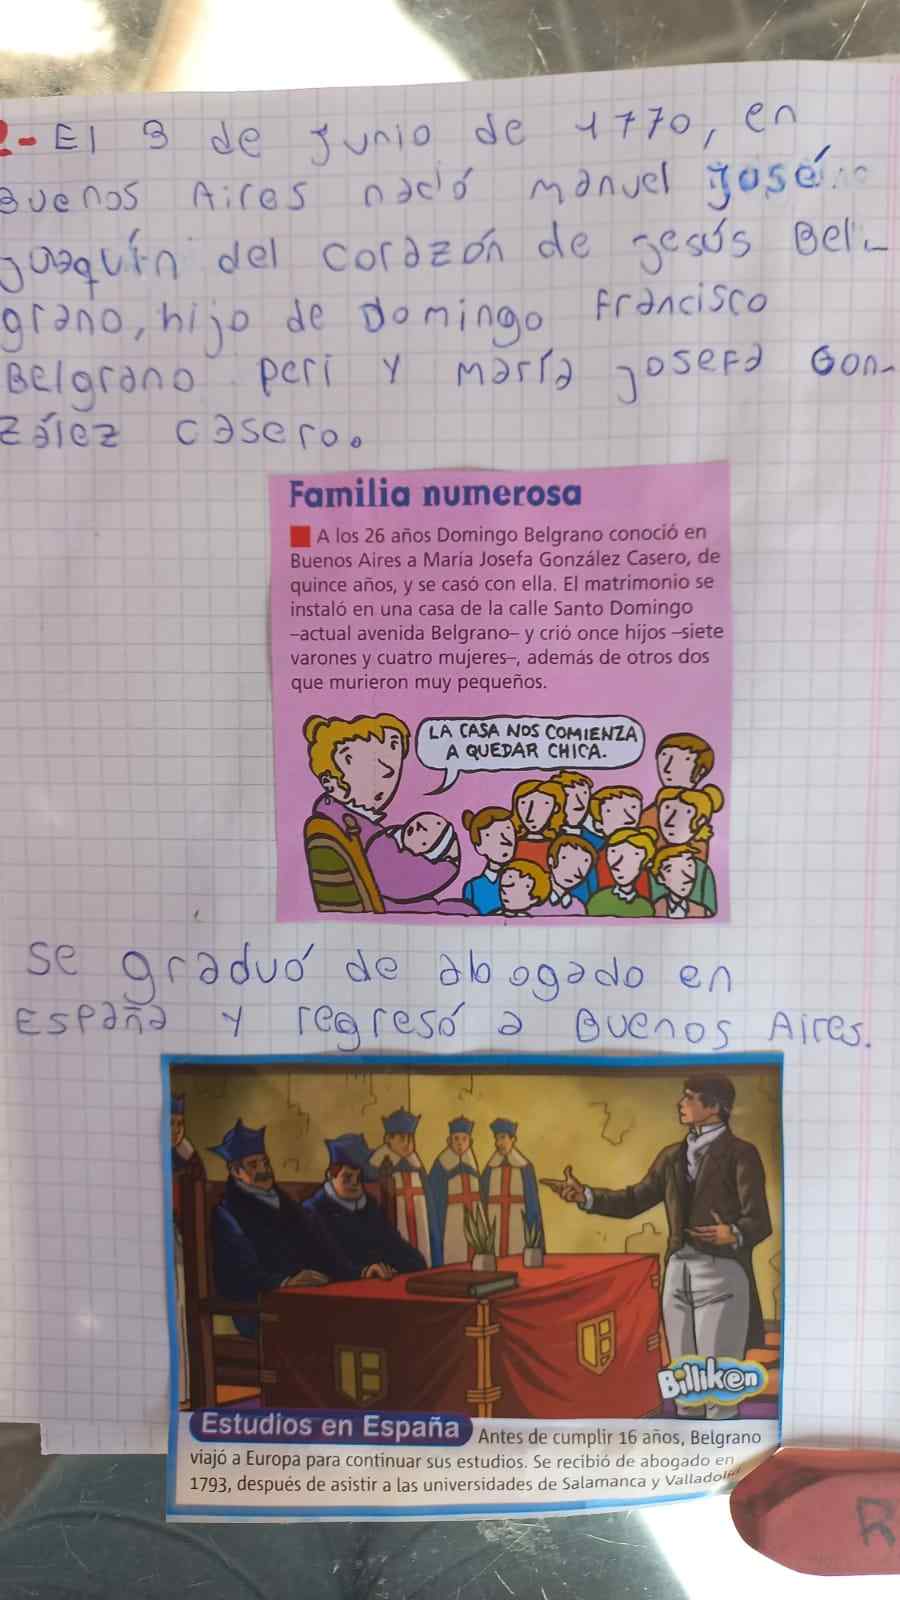 2- El 3 de Junio de 1770, en
Buenos Aires nació manuel José
Joaquín del corazón de Jesús Bel-
grano, hijo de Domingo Francisco
Belgrano peri y maría Josefa Gon-
zález casero.
Familia numerosa
A los 26 años Domingo Belgrano conoció en
Buenos Aires a María Josefa González Casero, de
quince años, y se casó con ella. El matrimonio se
instaló en una casa de la calle Santo Domingo
–actual avenida Belgrano– y crió once hijos –siete
varones y cuatro mujeres–, además de otros dos
que murieron muy pequeños.
LA CASA NOS COMIENZA
A QUEDAR CHICA.
se graduó de abogado en
España y regresó a Buenos Aires.
Billiken
Estudios en España Antes de cumplir 16 años, Belgrano
viajó a Europa para continuar sus estudios. Se recibió de abogado en
1793, después de asistir a las universidades de Salamanca y Valladolid